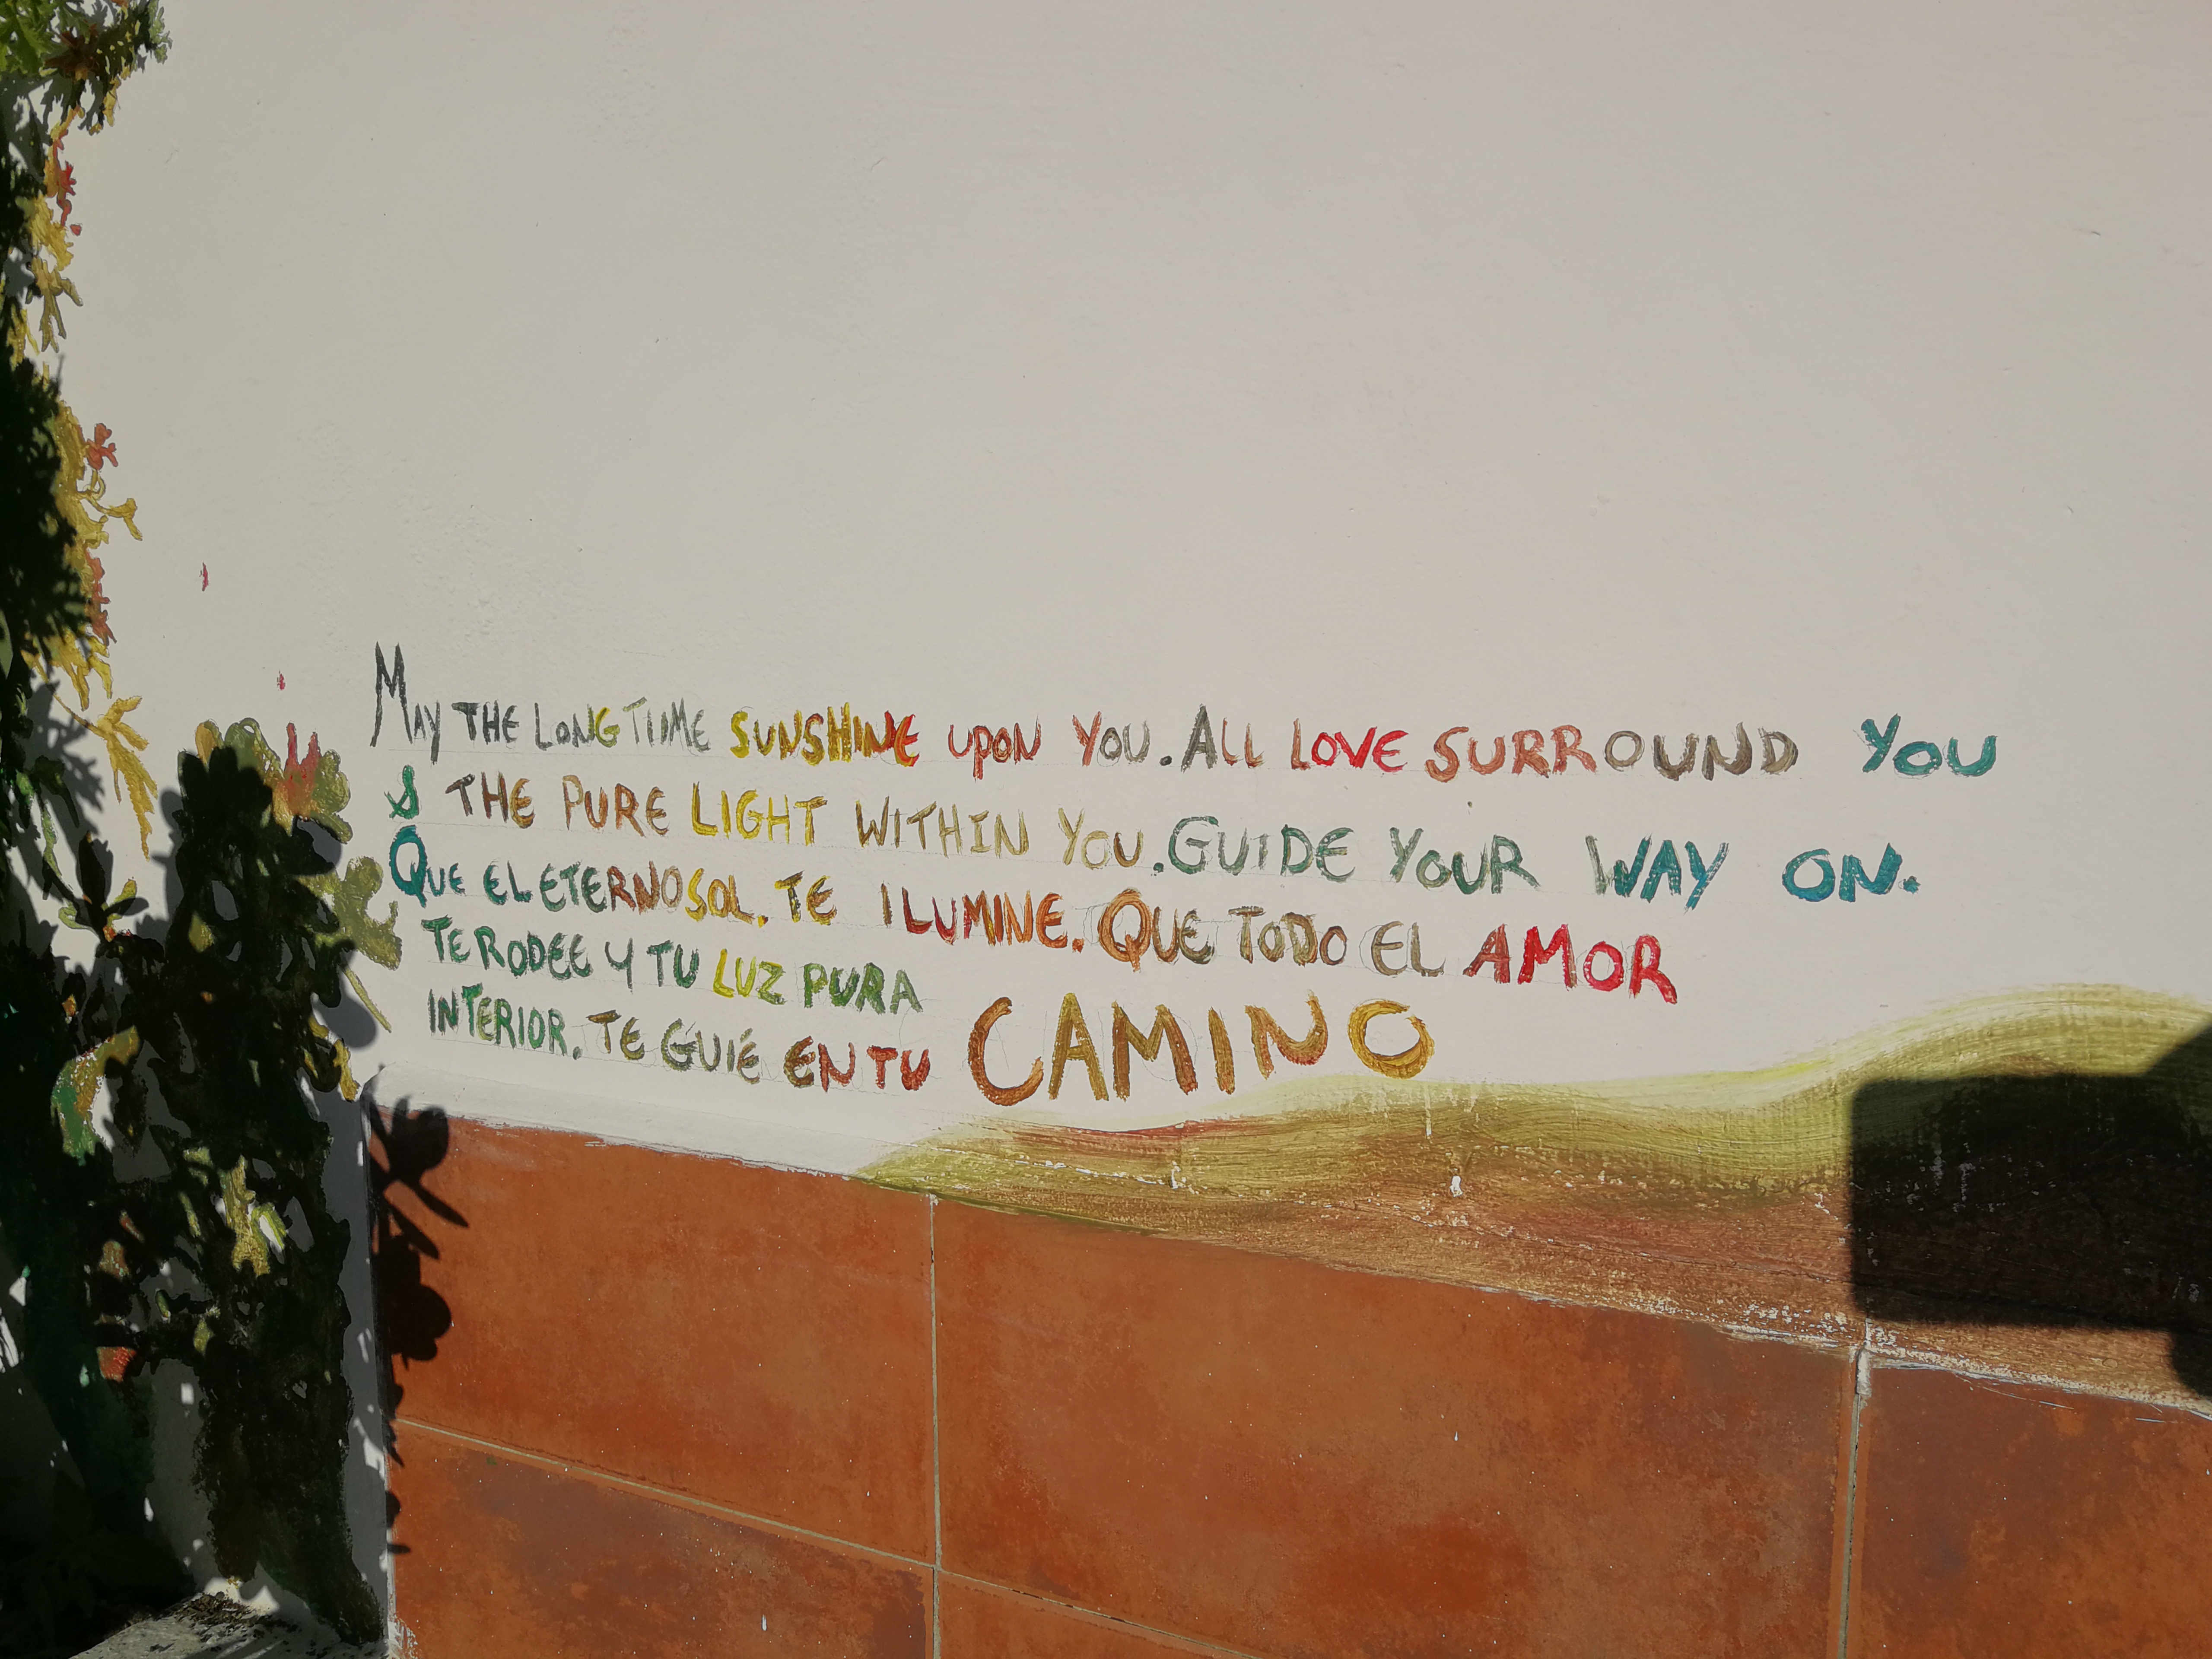 MAY THE LONG TIIME SUNSHINE UPON YOU. ALL LOVE SURROUND YOU
& THE PURE LIGHT WITHIN YOU. GUIDE YOUR WAY ON.
QUE EL ETERNO SOL. TE ILUMINE. QUE TODO EL AMOR
TE RODEE Y TU LUZ PURA
INTERIOR. TE GUIÉ EN TU CAMINO